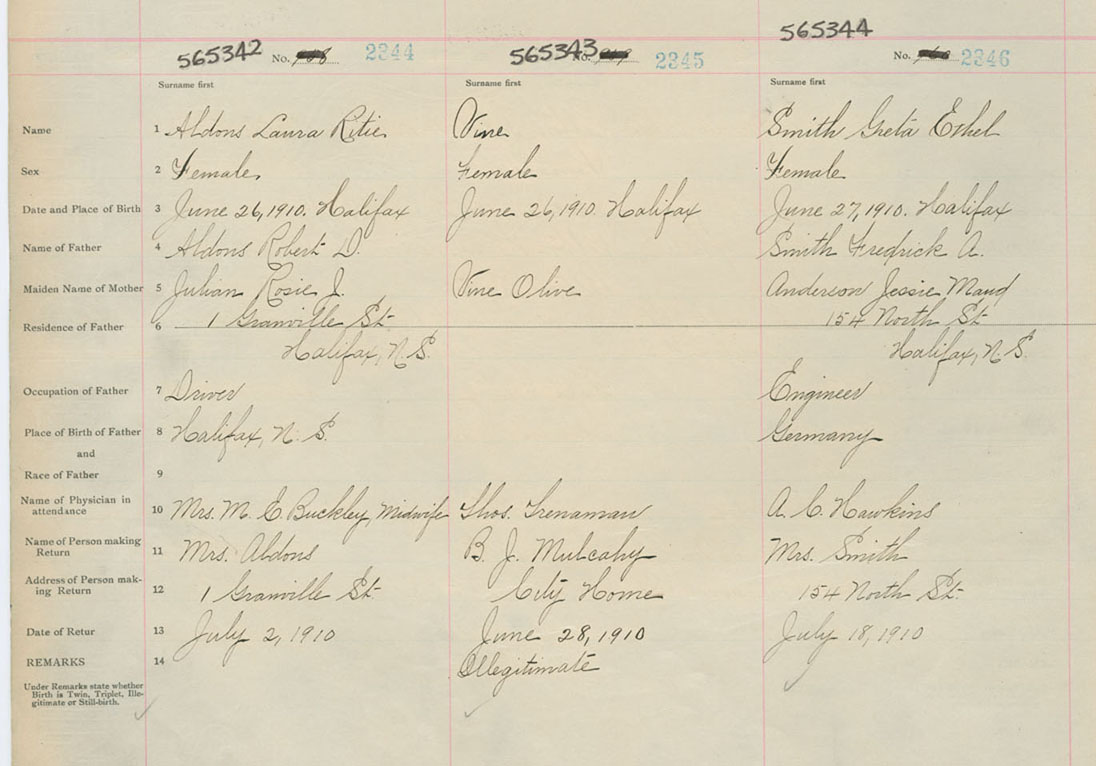 565342 No. 2344 565343 No. 2345 565344 No. 2346
Surname first Surname first Surname first
Name 1 Aldons Laura Ritie Vine Smith Greta Ethel
Sex 2 Female Female Female
Date and Place of Birth 3 June 26, 1910. Halifax June 26, 1910. Halifax June 27, 1910. Halifax
Name of Father 4 Aldons Robert D. Smith Fredrick A.
Maiden Name of Mother 5 Julian Rosie J. Vine Olive Anderson Jessie Maud
Residence of Father 6 1 Granville St. 154 North St.
Halifax, N.S. Halifax, N.S.
Occupation of Father 7 Driver Engineer
Place of Birth of Father 8 Halifax, N.S. Germany
and
Race of Father 9
Name of Physician in
attendance 10 Mrs. M. E. Buckley, Midwife Thos. Trenaman A. C. Hawkins
Name of Person making
Return 11 Mrs. Aldons B. J. Mulcahy Mrs. Smith
Address of Person mak-
ing Return 12 1 Granville St. City Home 154 North St.
Date of Retur 13 July 2, 1910 June 28, 1910 July 18, 1910
REMARKS 14 Illegitimate
Under Remarks state whether
Birth is Twin, Triplet, Ille-
gitimate or Still-birth.